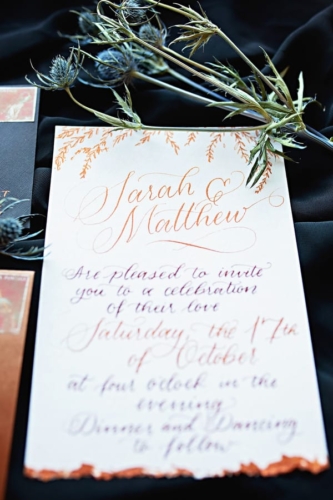 Sarah &
Matthew
Are pleased to invite
you to a celebration
of their love
Saturday, the 17th
of October
at four o'clock in the
evening
Dinner and Dancing
to follow